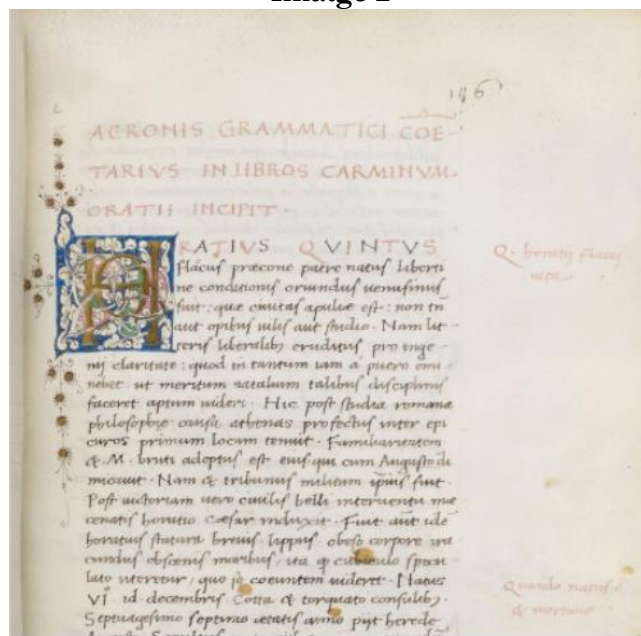 Imatge 2
146
ACRONIS GRAMMATICI COE-
TARIVS IN LIBROS CARMINVM
ORATII INCIPIT ·
RATIVS QVINTVS
Q. horatij flacci
uita
flaccus præcone patre natus liberti
ne conditionis oriundus uenusinus
fuit : quæ ciuitas apuliæ est : non tñ
aut opibus uilis aut studio · Nam lit-
teris liberalib eruditus pro inge-
nij claritate : quod in tantum iam a puero emi-
nebat : ut meritum natalium talibus disciplinis
faceret aptum uideri · Hic post studia romana
philosophiæ causa athenas profectus inter epi
curos primum locum tenuit · Familiaritatem
& M. bruti adeptus est eius qui cum Augusto di
micauit · Nam & tribunus militum ipsius fuit ·
Post uictoriam uero ciuilis belli interuentu mæ
cenatis horatio Cæsar induxit · Fuit aut idē
horatius statura breuis lippus obeso corpore ira
cundus obscenis moribus / ita cubiculo specu
lato uteretur / quo coeuntem uideret · Natus
VI id decembris Cotta & torquato consulib
Quando natus e
& mortuus
Septuagesimo septimo ætatis anno pijt herede
Augusto